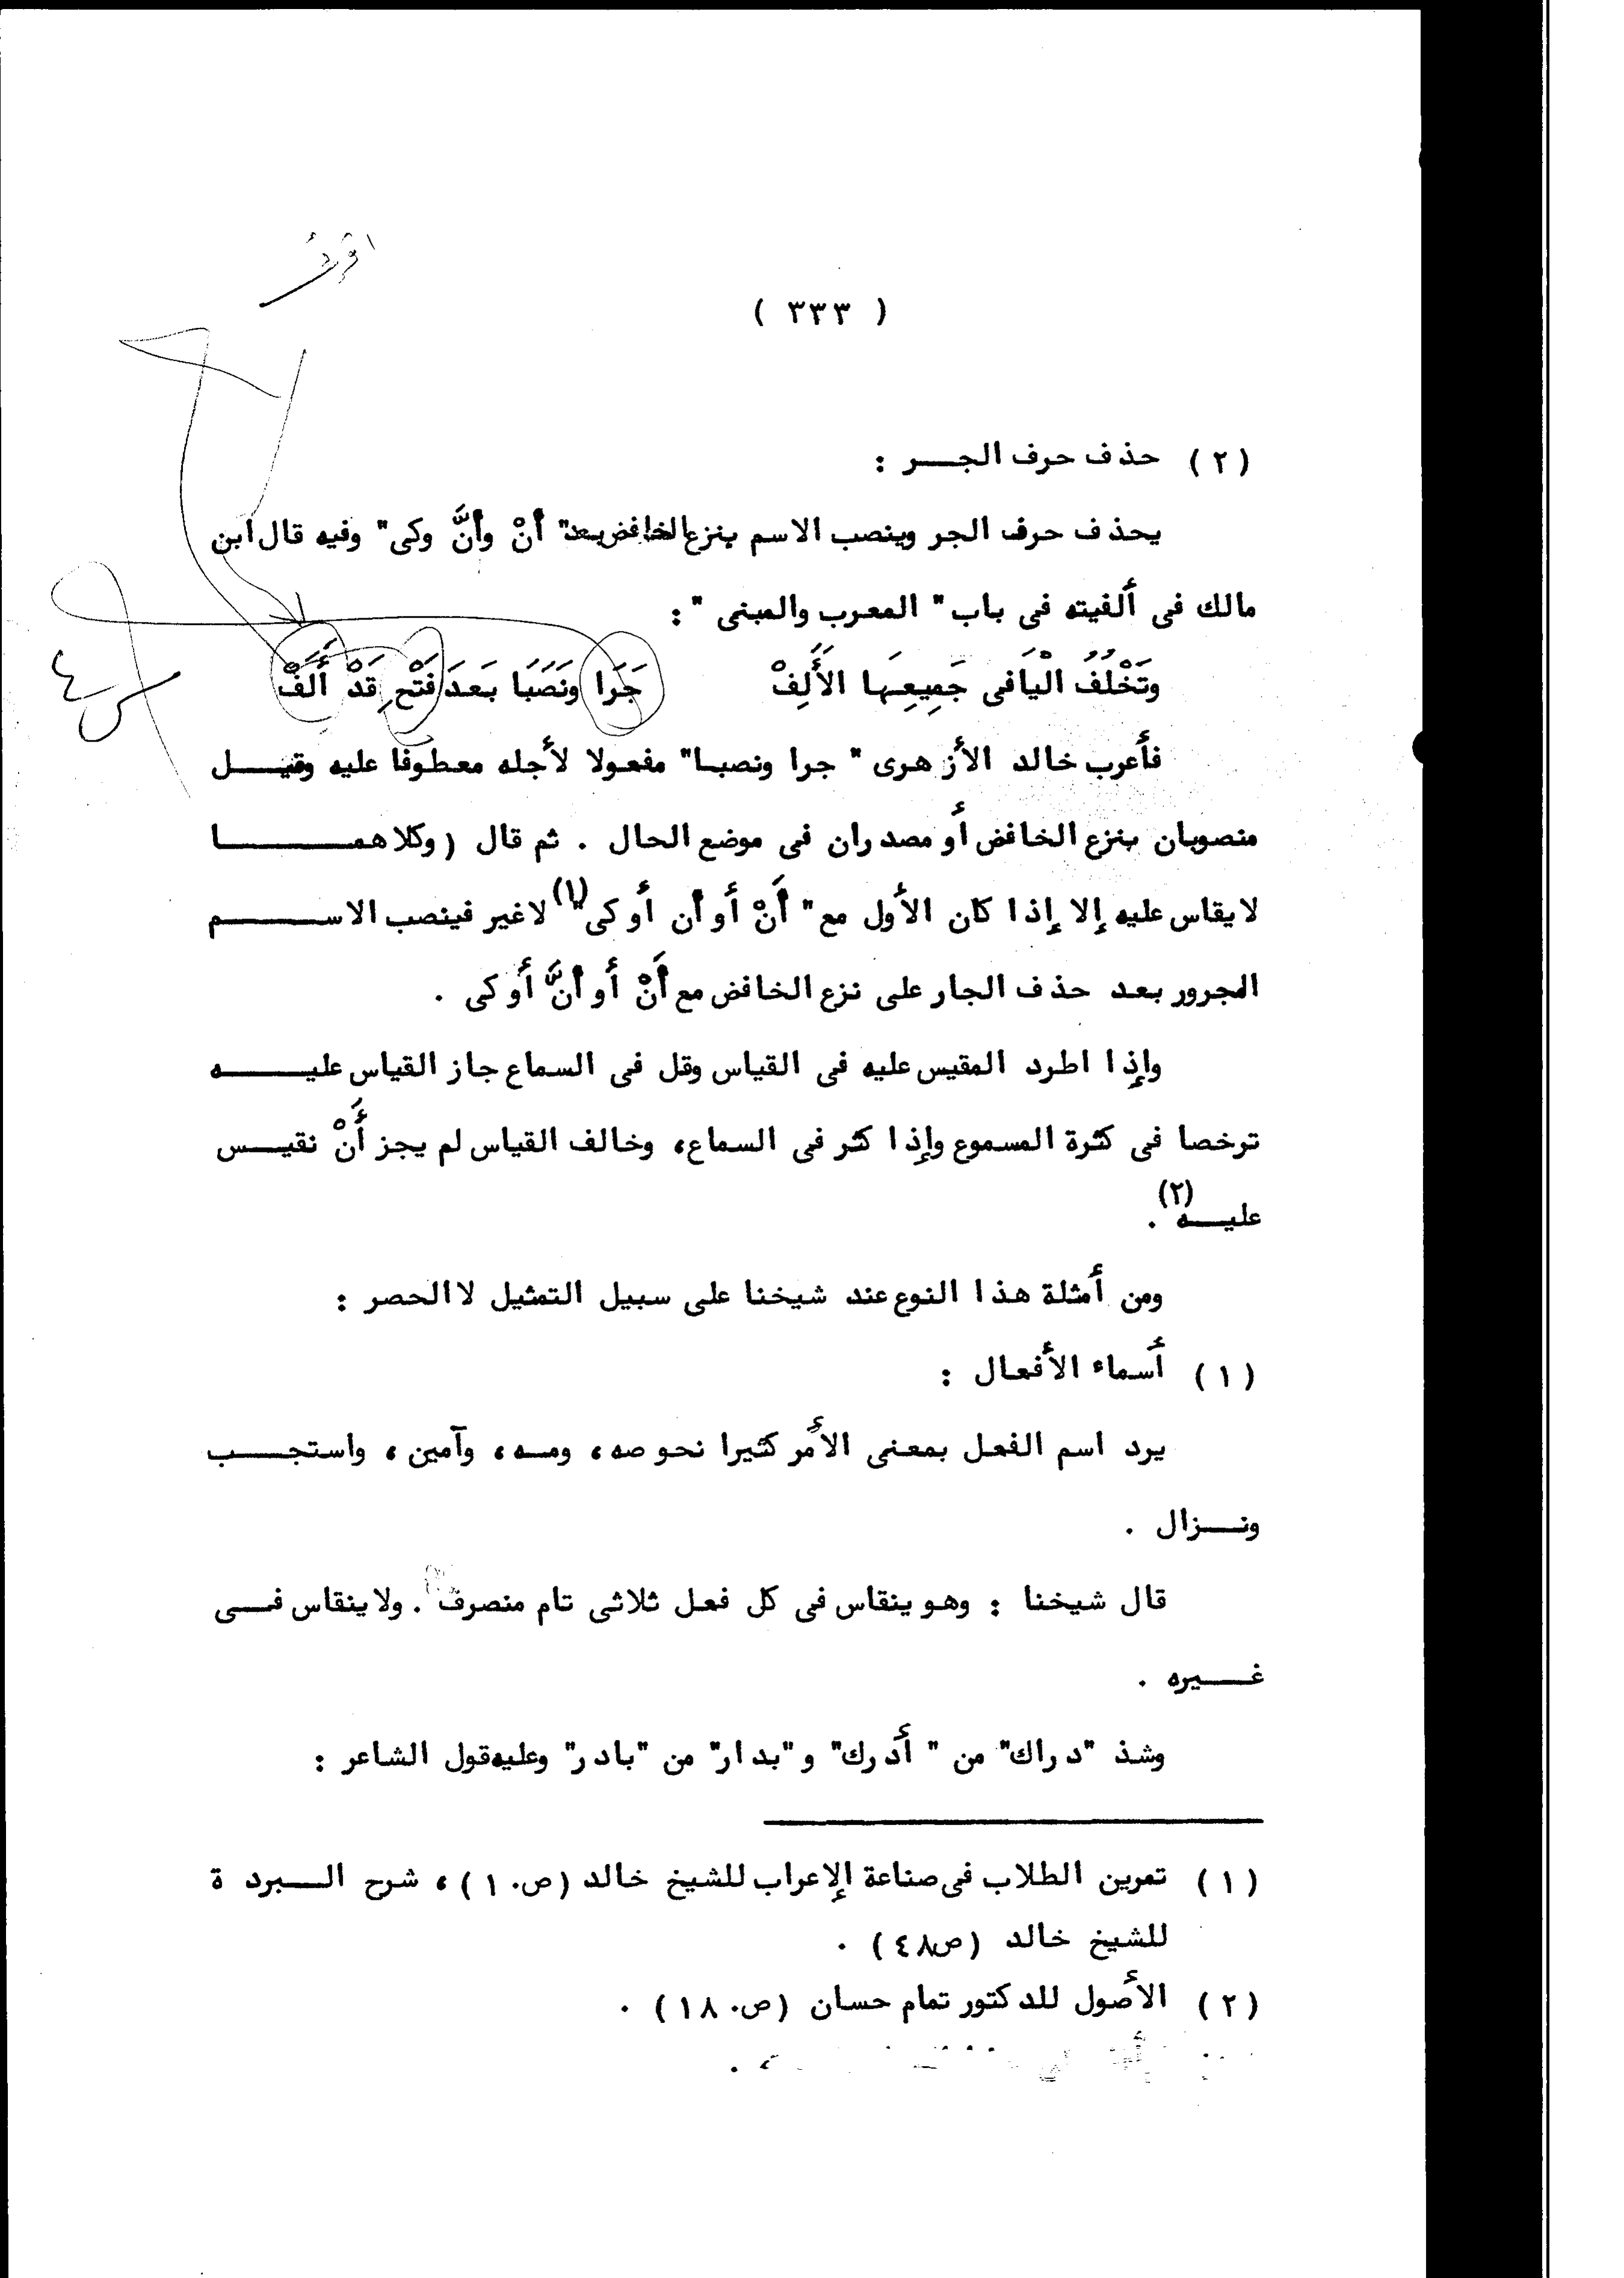 ( ٣٣٣ )
( ٢ ) حذف حرف الجـــر :
يحذف حرف الجر وينصب الاسم بنزع الخافض بعد " أنْ وأنَّ وكى" وفيه قال ابن
مالك فى ألفيته فى باب " المعرب والمبنى " :
وَتَخْلُفُ الْيَافى جَمِيعِهَا الأَلِفْ جَرَا ونَصَبَا بَعدَ فَتْحٍ قَدْ أُلَفْ
فأعرب خالد الأزهرى " جرا ونصبا" مفعولا لأجله معطوفا عليه وقيـــل
منصوبان بنزع الخافض أو مصدران فى موضع الحال . ثم قال ( وكلاهمـــــا
لا يقاس عليه إلا إذا كان الأول مع " أنْ أو أن أو كى"(١) لا غير فينصب الاســـــم
المجرور بعد حذف الجار على نزع الخافض مع أَنْ أو أنَّ أو كى .
وإذا اطرد المقيس عليه فى القياس وقل فى السماع جاز القياس عليـــــه
ترخصا فى كثرة المسموع وإذا كثر فى السماع، وخالف القياس لم يجز أَنْ نقيـــس
عليـــه(٢) .
ومن أمثلة هذا النوع عند شيخنا على سبيل التمثيل لا الحصر :
( ١ ) أسماء الأفعال :
يرد اسم الفعل بمعنى الأمر كثيرا نحو صه، ومـه، وآمين، واستجـــب
ونـــزال .
قال شيخنا : وهو ينقاس فى كل فعل ثلاثى تام منصرف . ولا ينقاس فـــى
غـــيره .
وشذ "دراك" من " أدرك" و "بدار" من "بادر" وعليه قول الشاعر :
( ١ ) تمرين الطلاب فى صناعة الإعراب للشيخ خالد (ص١٠) ، شرح الـــبردة
للشيخ خالد (ص٤٨) .
( ٢ ) الأصول للدكتور تمام حسان (ص١٨٠) .